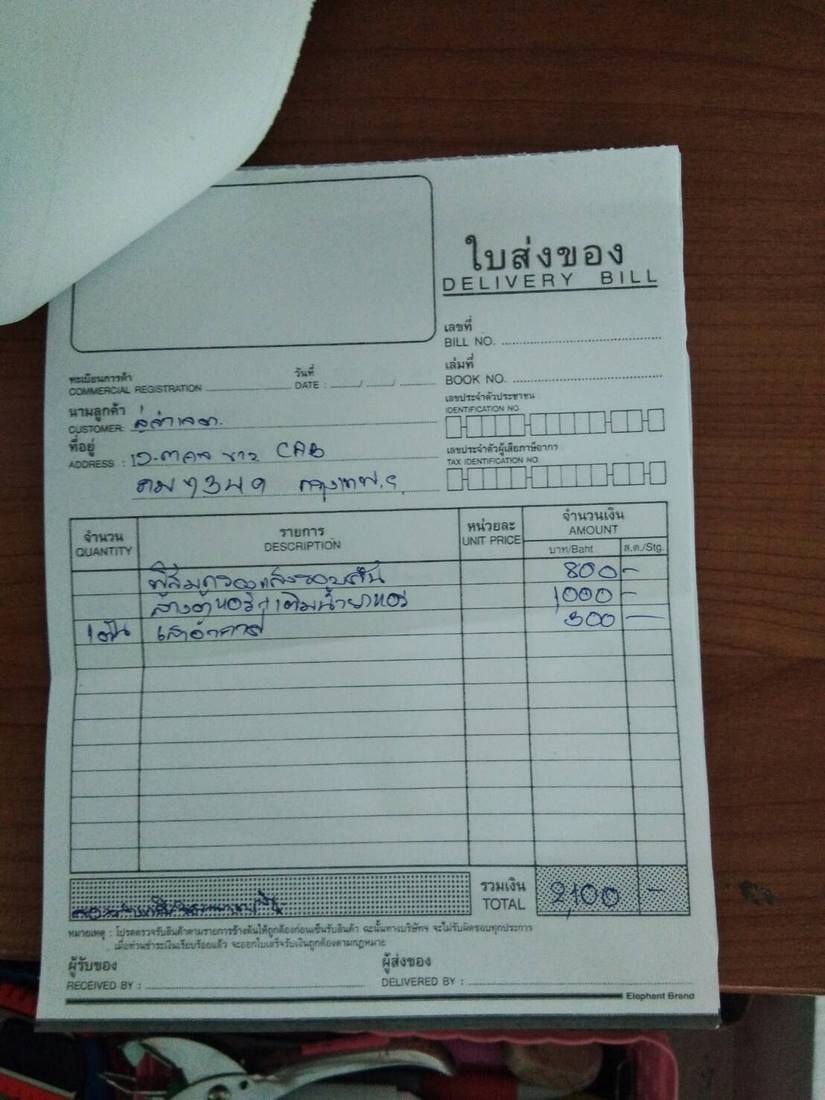 ใบส่งของ
DELIVERY BILL
เลขที่
BILL NO.
ทะเบียนการค้า
COMMERCIAL REGISTRATION
วันที่
DATE : / /
เล่มที่
BOOK NO.
นามลูกค้า
CUSTOMER:
เลขประจำตัวประชาชน
IDENTIFICATION NO.
ที่อยู่
ADDRESS : CAB
กรุงเทพฯ
เลขประจำตัวผู้เสียภาษีอากร
TAX IDENTIFICATION NO.
จำนวน
QUANTITY
รายการ
DESCRIPTION
หน่วยละ
UNIT PRICE
จำนวนเงิน
AMOUNT
บาท/Baht ส.ต./Stg.
800 -
ล้างตู้แอร์ + เติมน้ำยาแอร์ 1000 -
300 -
รวมเงิน
TOTAL 2,100 -
หมายเหตุ : โปรดตรวจรับสินค้าตามรายการข้างต้นให้ถูกต้องก่อนเซ็นรับสินค้า ฉะนั้นทางบริษัทฯ จะไม่รับผิดชอบทุกประการ
เมื่อท่านชำระเงินเรียบร้อยแล้ว จะออกใบเสร็จรับเงินถูกต้องตามกฎหมาย
ผู้รับของ
RECEIVED BY :
ผู้ส่งของ
DELIVERED BY :
Elephant Brand